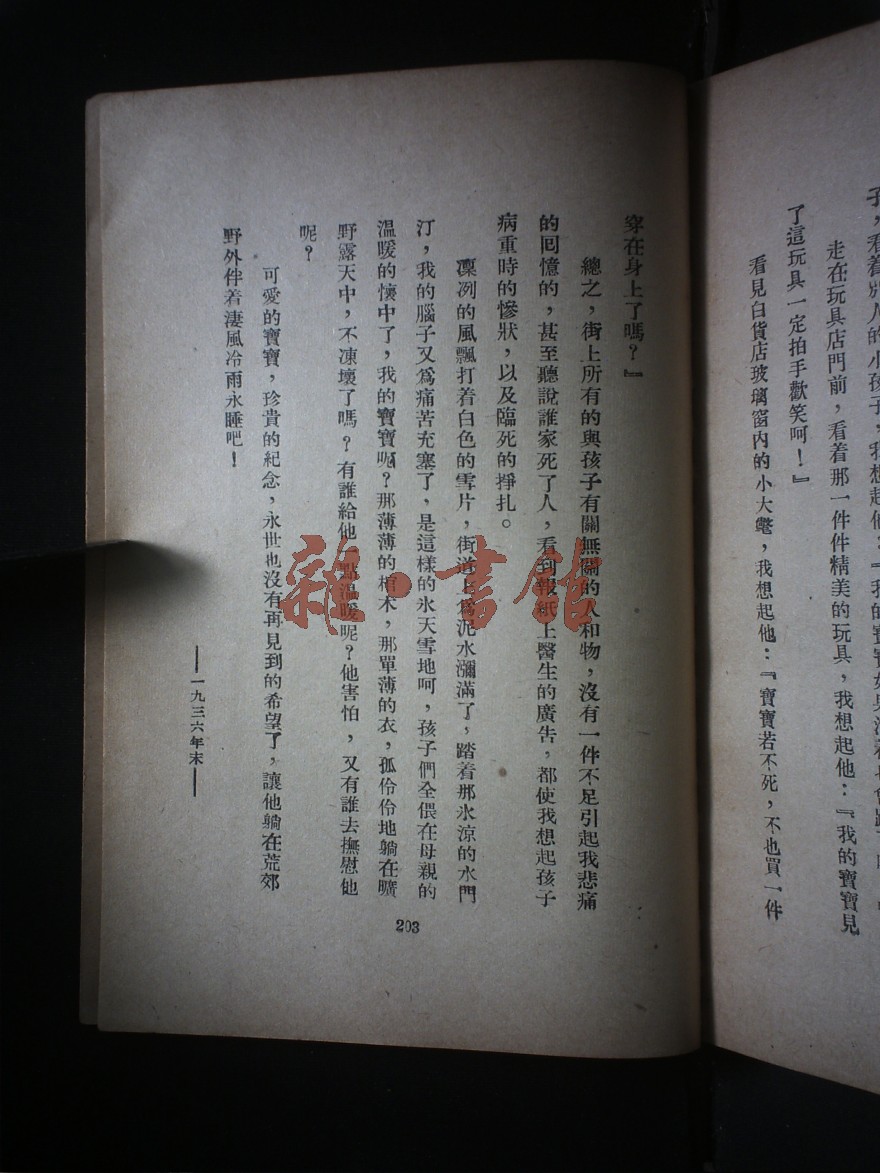 走在玩具店門前，看着那一件件精美的玩具，我想起他：『我的寶寶見
了這玩具一定拍手歡笑呵！』
看見百貨店玻璃窗內的小大氅，我想起他：『寶寶若不死，不也買一件
穿在身上了嗎？』
總之，街上所有的與孩子有關無關的人和物，沒有一件不足引起我悲痛
的回憶的，甚至聽說誰家死了人，看到報紙上醫生的廣告，都使我想起孩子
病重時的慘狀，以及臨死的掙扎。
凜冽的風飄打着白色的雪片，街道上爲泥水瀰滿了，踏着那氷涼的水門
汀，我的腦子又爲痛苦充塞了，是這樣的氷天雪地呵，孩子們全偎在母親的
溫暖的懷中了，我的寶寶呢？那薄薄的棺木，那單薄的衣，孤伶伶地躺在曠
野露天中，不凍壞了嗎？有誰給他一點溫暖呢？他害怕，又有誰去撫慰他
呢？
可愛的寶寶，珍貴的紀念，永世也沒有再見到的希望了，讓他躺在荒郊
野外伴着淒風冷雨永睡吧！
——一九三六年末——
203
雜·書館